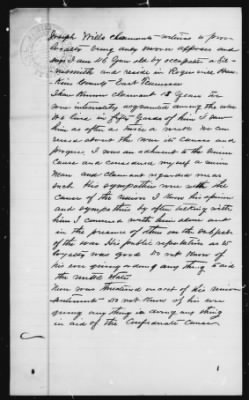 Joseph Wills claimants witness to prove
loyalty being duly sworn deposes and
says I am 46 years old by occupation a bl-
acksmith and reside in Rogersville Haw
kins County East Tennessee
I have known claimant 18 years two
were intimately acquainted during the war
We lived in fifty yards of him I saw
him as often as twice a week We con
versed about the war its causes and
progress. I was an adherent to the Union
cause and considered myself a Union
man and claimant regarded me as
such His sympathies were with the
cause of the Union I know his opinions
and sympathies by often talking with
him I conversed with him alone and
in the presence of others on the subject
of the war His public reputation as to
loyalty was good Do not know of
his ever giving or doing any thing to aid
the United States
Never was threatened on acct of his Union
sentiments - Do not know of his ever
giving any thing or doing any thing
in aid of the Confederate Cause